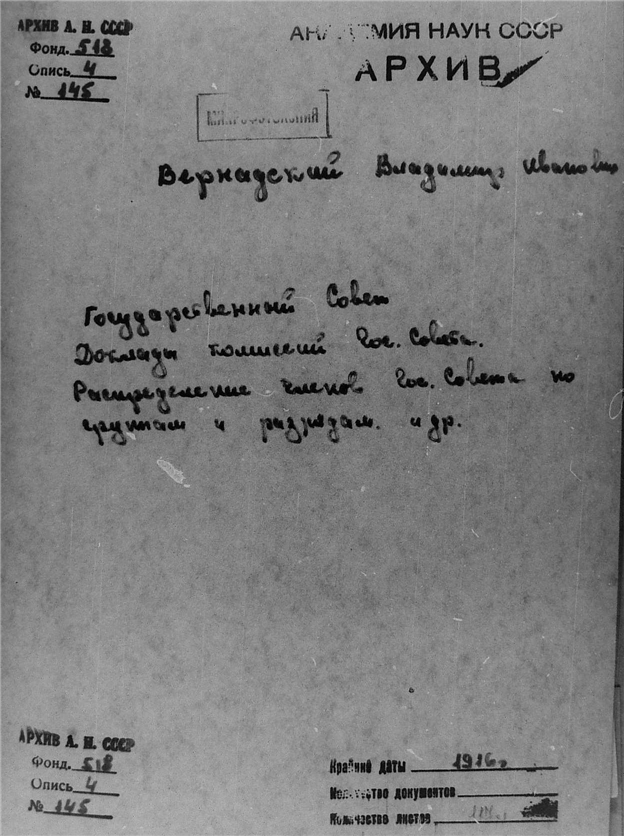 АРХИВ А. Н. СССР
Фонд. 518
Опись 4
№ 145
АКАДЕМИЯ НАУК СССР
АРХИВ
Вернадский Владимир Иванович
Государственный Совет
Доклады комиссий Гос. Совета.
Распределение членов Гос. Совета по
группам и разрядам. и др.
АРХИВ А. Н. СССР
Фонд. 518
Опись 4
№ 145
Крайние даты 1916 г.
Количество документов
Количество листов